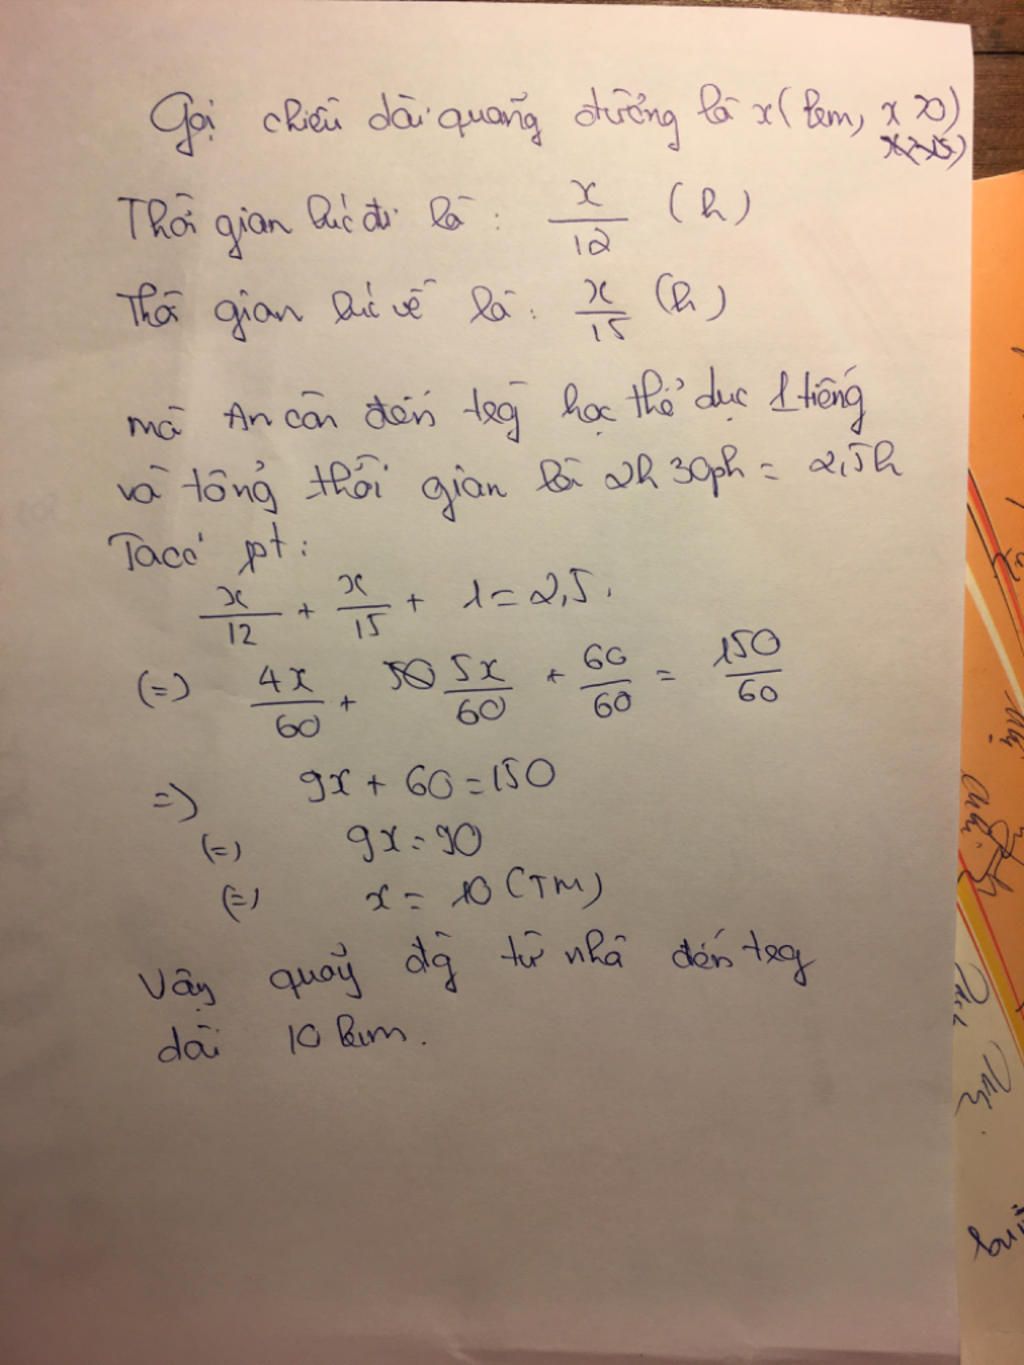 Gọi chiều dài quãng đường là x (km, x >0)
Thời gian lúc đi là: x/12 (h)
Thời gian lúc về là: x/15 (h)
mà An còn đến trg học thể dục 1 tiếng
và tổng thời gian là 2h 30ph = 2,5h
Ta có pt:
x/12 + x/15 + 1 = 2,5.
(=) 4x/60 + 5x/60 + 60/60 = 150/60
=) 9x + 60 = 150
(=) 9x = 90
(=) x = 10 (TM)
Vậy quãg đg từ nhà đến trg
dài 10 km.